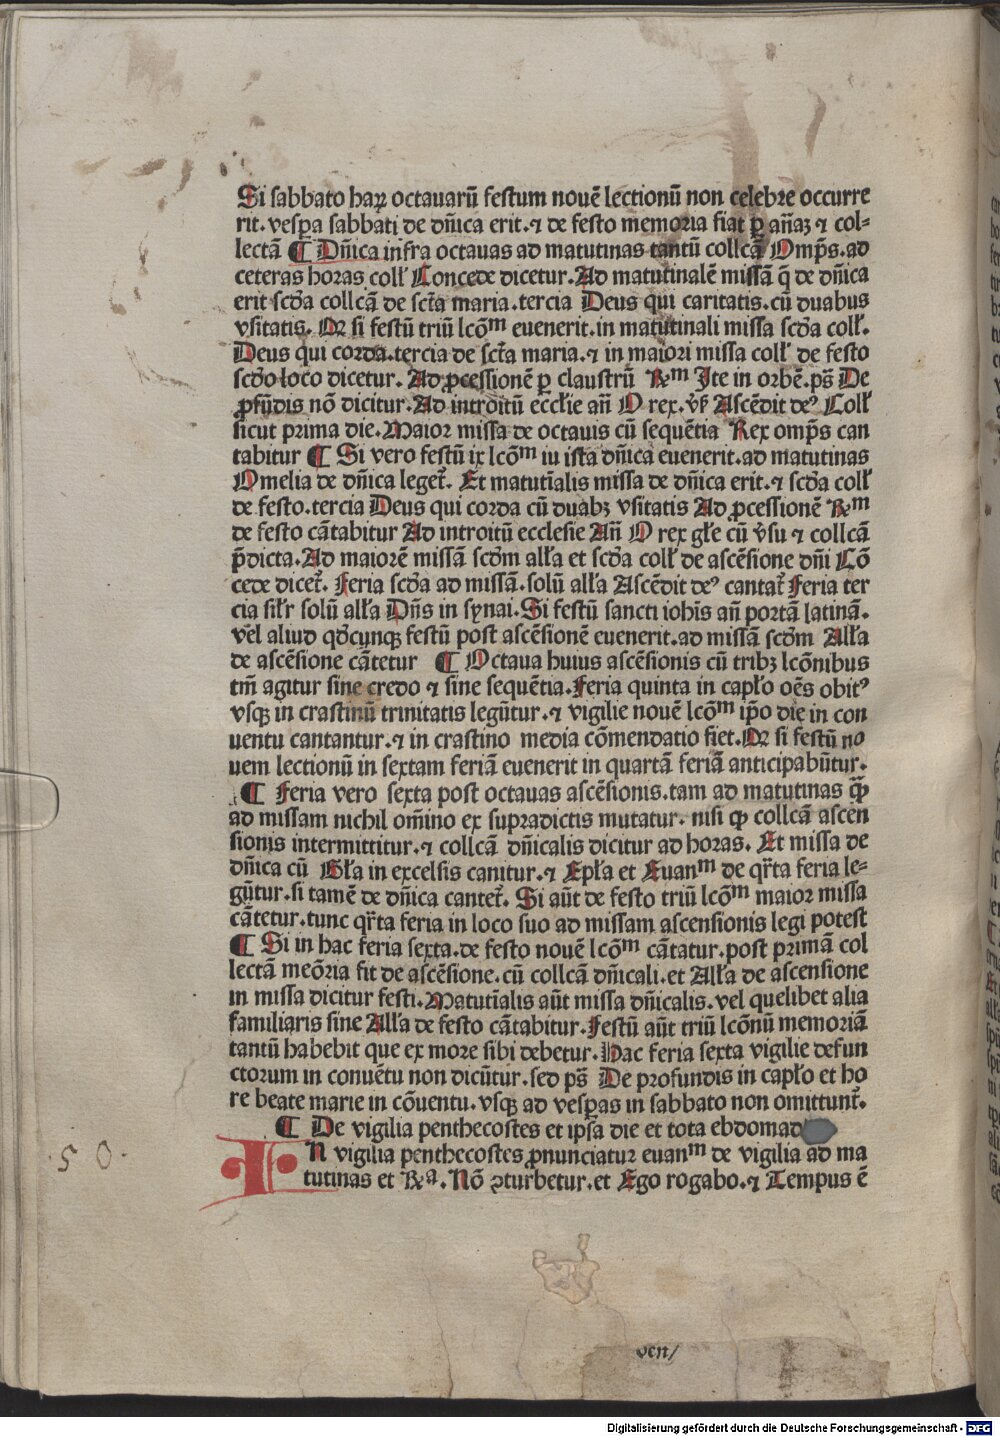 Si sabbato haꝝ octauarū festum nouē lectionū non celebre occurre
rit.vesꝑa sabbati de dñica erit.⁊ de festo memoria fiat ꝑ añaꝫ ⁊ col⸗
lectā ¶ Dñica infra octauas ad matutinas tantū collcā Omp̄s.ad
ceteras horas coll̄ Concede dicetur.Ad matutinalē missā q̄ de dñica
erit scd̄a collcā de sct̄a maria.tercia Deus qui caritatis.cū duabus
vsitatis. Qꝛ si festū triū lcōm euenerit.in matutinali missa scd̄a coll̄.
Deus qui corda.tercia de sct̄a maria.⁊ in maiori missa coll̄ de festo
scd̄o loco dicetur. Ad ꝓcessionē ꝑ claustrū Rm Ite in orbē.ps̄ De
ꝓfūdis nō dicitur.Ad introitū eccl̄ie añ O rex.v̄ẜ Ascēdit deꝰ Coll̄
sicut prima die.Maior missa de octauis cū sequētia Rex omp̄s can
tabitur ¶ Si vero festū ix lcōm iu ista dñica euenerit.ad matutinas
Omelia de dñica leget᷑. Et matutīalis missa de dñica erit.⁊ scd̄a coll̄
de festo.tercia Deus qui corda cū duabꝫ vsitatis Ad ꝓcessionē Rm
de festo cātabitur Ad introitū ecclesie Añ O rex gl̄e cū v̄su ⁊ collcā
p̄dicta.Ad maiorē missā scd̄m all̄a et scd̄a coll̄ de ascēsione dñi Cō
cede dicet᷑. Feria scd̄a ad missā.solū all̄a Ascēdit deꝰ cantat᷑ Feria ter
cia sil̄r solū all̄a Dñs in synai.Si festū sancti ioh̄is añ portā latinā.
vel aliud qd̄cunqꝫ festū post ascēsionē euenerit.ad missā scd̄m All̄a
de ascēsione cātetur ¶ Octaua huius ascēsionis cū tribꝫ lcōnibus
tm̄ agitur sine credo ⁊ sine sequētia.Feria quinta in capl̄o oēs obitꝰ
vsqꝫ in crastinū trinitatis legūtur.⁊ vigilie nouē lcōm ip̄o die in con
uentu cantantur.⁊ in crastino media cōmendatio fiet.Qꝛ si festū no
uem lectionū in sextam feriā euenerit in quartā feriā anticipabūtur.
¶ Feria vero sexta post octauas ascēsionis.tam ad matutinas qꝫ̄
ad missam nichil om̄ino ex supradictis mutatur. nisi ꝙ collcā ascen
sionis intermittitur.⁊ collcā dñicalis dicitur ad horas. Et missa de
dñica cū Gl̄a in excelsis canitur.⁊ Epl̄a et Euanm de qr̄ta feria le⸗
gūtur.si tamē de dñica cantet᷑. Si aūt de festo triū lcōm maior missa
cātetur.tunc qr̄ta feria in loco suo ad missam ascensionis legi potest
¶ Si in hac feria sexta.de festo nouē lcōm cātatur.post primā col
lectā meōria fit de ascēsione.cū collcā dñicali.et All̄a de ascensione
in missa dicitur festi.Matutīalis aūt missa dñicalis.vel quelibet alia
familiaris sine All̄a de festo cātabitur.Festū aūt triū lcōnū memoriā
tantū habebit que ex more sibi debetur.Hac feria sexta vigilie defun
ctorum in conuētu non dicūtur.sed ps̄ De profundis in capl̄o et ho
re beate marie in cōuentu.vsqꝫ ad vesꝑas in sabbato non omittunt᷑.
¶ De vigilia penthecostes et ip̄sa die et tota ebdomad
IN vigilia penthecostes ꝓnunciatur euanm de vigilia ad ma
tutinas et Ra. Nō ꝯturbetur.et Ego rogabo.⁊ Tempus ē
50.
ven/
Digitalisierung gefördert durch die Deutsche Forschungsgemeinschaft - DFG